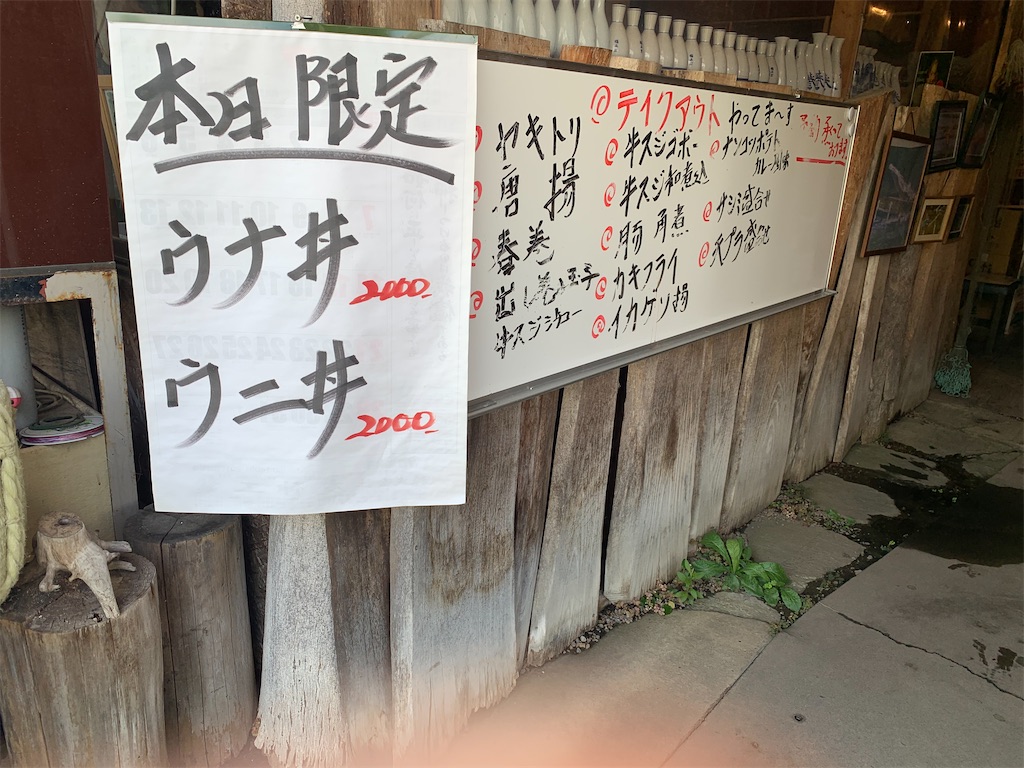 本日限定
ウナ丼
2000
ウニ丼
2000
テイクアウト やってま〜す
ヤキトリ
唐揚
春巻
出し巻玉子
牛スジジャー
牛スジゴボー
牛スジ和煮込
豚角煮
カキフライ
イカゲソ揚
ナンコツポテト
サシミ盛合せ
天プラ盛合せ